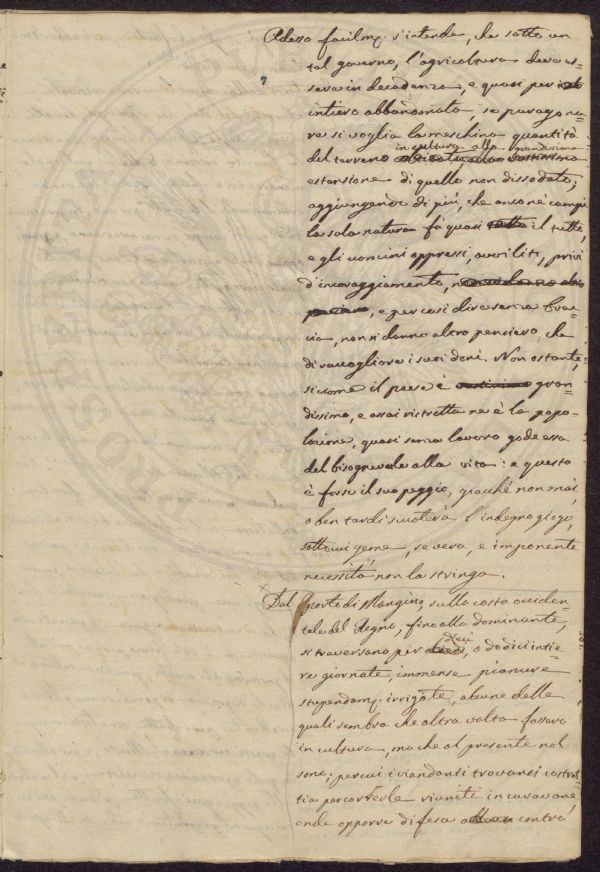 Adesso facilm. s'intende, che sotto un
tal governo, l'agricoltura deva es-
sere in decadenza, e quasi per
intiero abbandonata, se parago na-
re si voglia la meschina quantità
in cultura alla grandissima
del terreno
estensione di quello non dissodato;
aggiungendo di più, che ancone campi
la sola natura fà quasi tutto il tutto,
e gli uomini oppressi, avviliti, privi
d'incoraggiamento,
pensiero, e per così dire senza brac-
cia, non si danno altro pensiero che
di raccogliere i suoi doni. Non ostante,
siccome il paese è gran-
dissimo, e assai ristretta ne è la popo-
lazione, quasi senza lavoro gode essa
del bisognevole alla vita: e questo
è forse il suo peggio, giacchè non mai,
o ben tardi scuoterà l'indegno giogo,
sotto cui geme, se vera, e imponente
necessità non la stringa.
Dal porto di Mangino, sulla costa occiden-
tale del Regno, fino alla dominante,
dieci
si traversano per dieci, o dodici intie-
re giornate, immense pianure
stupendam. irrigate, alcune delle
quali sembra che altra volta fossero
in cultura, ma che al presente nol
sono; per cui i viandanti trovansi costret-
ti a percorrerle riuniti in caravane,
onde opporre difesa contro